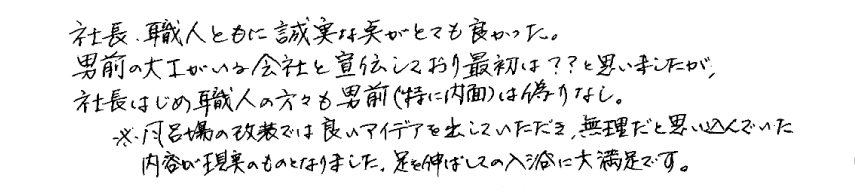 社長、職人ともに誠実な点がとても良かった。
男前の大工がいる会社と宣伝しており最初は??と思いましたが、
社長はじめ職人の方々も男前(特に内面)は偽りなし。
※.風呂場の改装では良いアイデアを出していただき、無理だと思い込んでいた
内容が現実のものとなりました。足を伸ばしての入浴に大満足です。